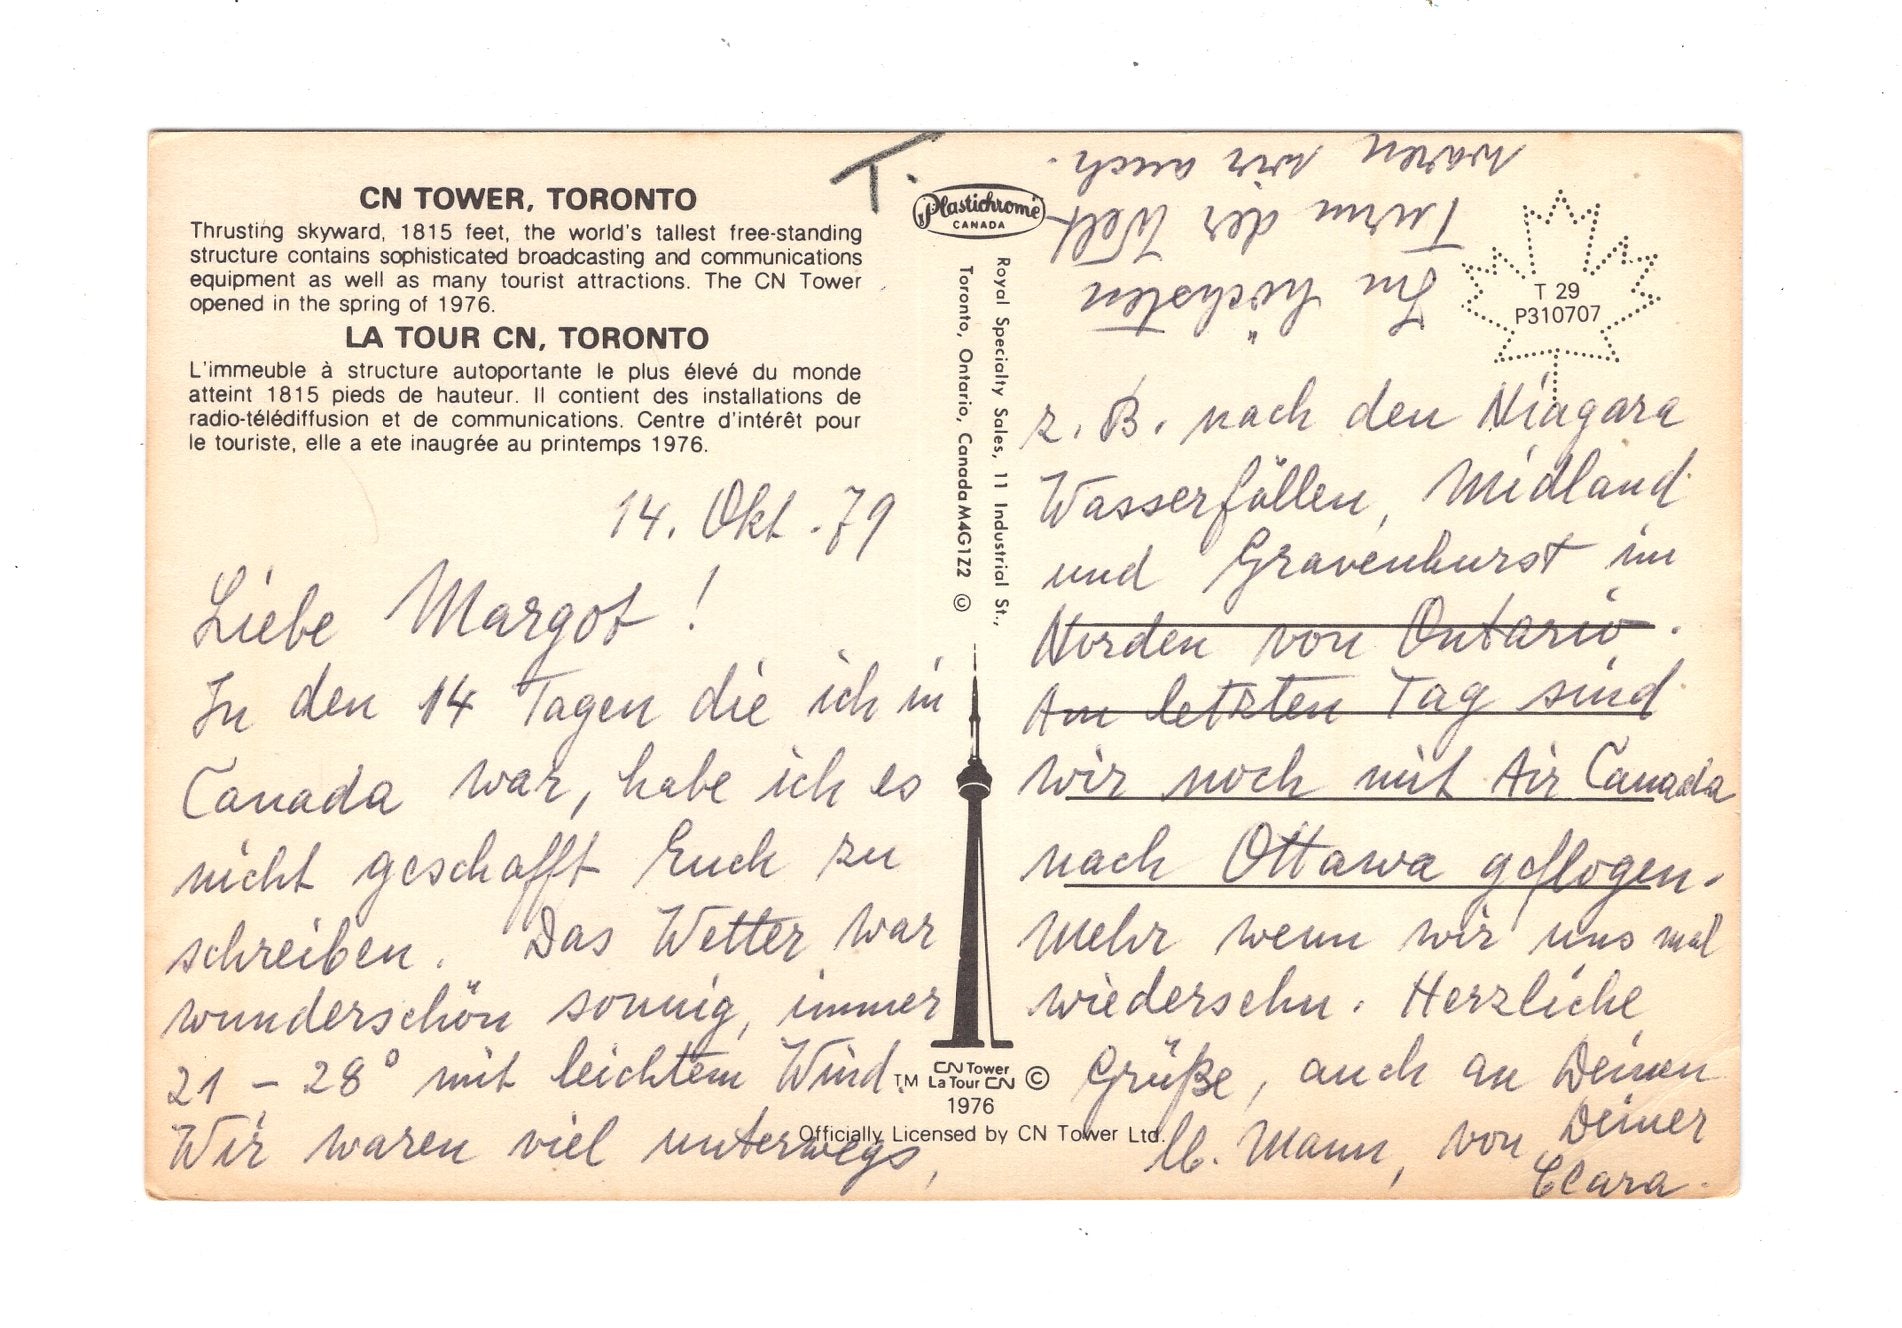 CN TOWER, TORONTO
Thrusting skyward, 1815 feet, the world's tallest free-standing
structure contains sophisticated broadcasting and communications
equipment as well as many tourist attractions. The CN Tower
opened in the spring of 1976.
LA TOUR CN, TORONTO
L'immeuble à structure autoportante le plus élevé du monde
atteint 1815 pieds de hauteur. Il contient des installations de
radio-télédiffusion et de communications. Centre d'intérêt pour
le touriste, elle a ete inaugrée au printemps 1976.
T.
14. Okt. 79
Liebe Margot!
In den 14 Tagen die ich in
Canada war, habe ich es
nicht geschafft Euch zu
schreiben. Das Wetter war
wunderschön sonnig, immer
21 – 28° mit leichtem Wind.
Wir waren viel unterwegs,
Plastichrome
CANADA
Royal Specialty Sales, 11 Industrial St.,
Toronto, Ontario, Canada M4G1Z2 ©
TM CN Tower ©
La Tour CN
1976
Officially Licensed by CN Tower Ltd.
T 29
P310707
z. B. nach den Niagara
Wasserfällen, Midland
und Gravenhurst im
Norden von Ontario.
Am letzten Tag sind
wir noch mit Air Canada
nach Ottawa geflogen.
Mehr wenn wir uns mal
wiedersehn. Herzliche
Grüße, auch an Deinen
lb. Mann, von Deiner
Clara.
Im höchsten
Turm der Welt
waren wir auch.